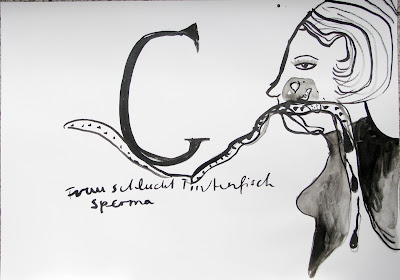 C
Frau schluckt Tintenfisch
Sperma